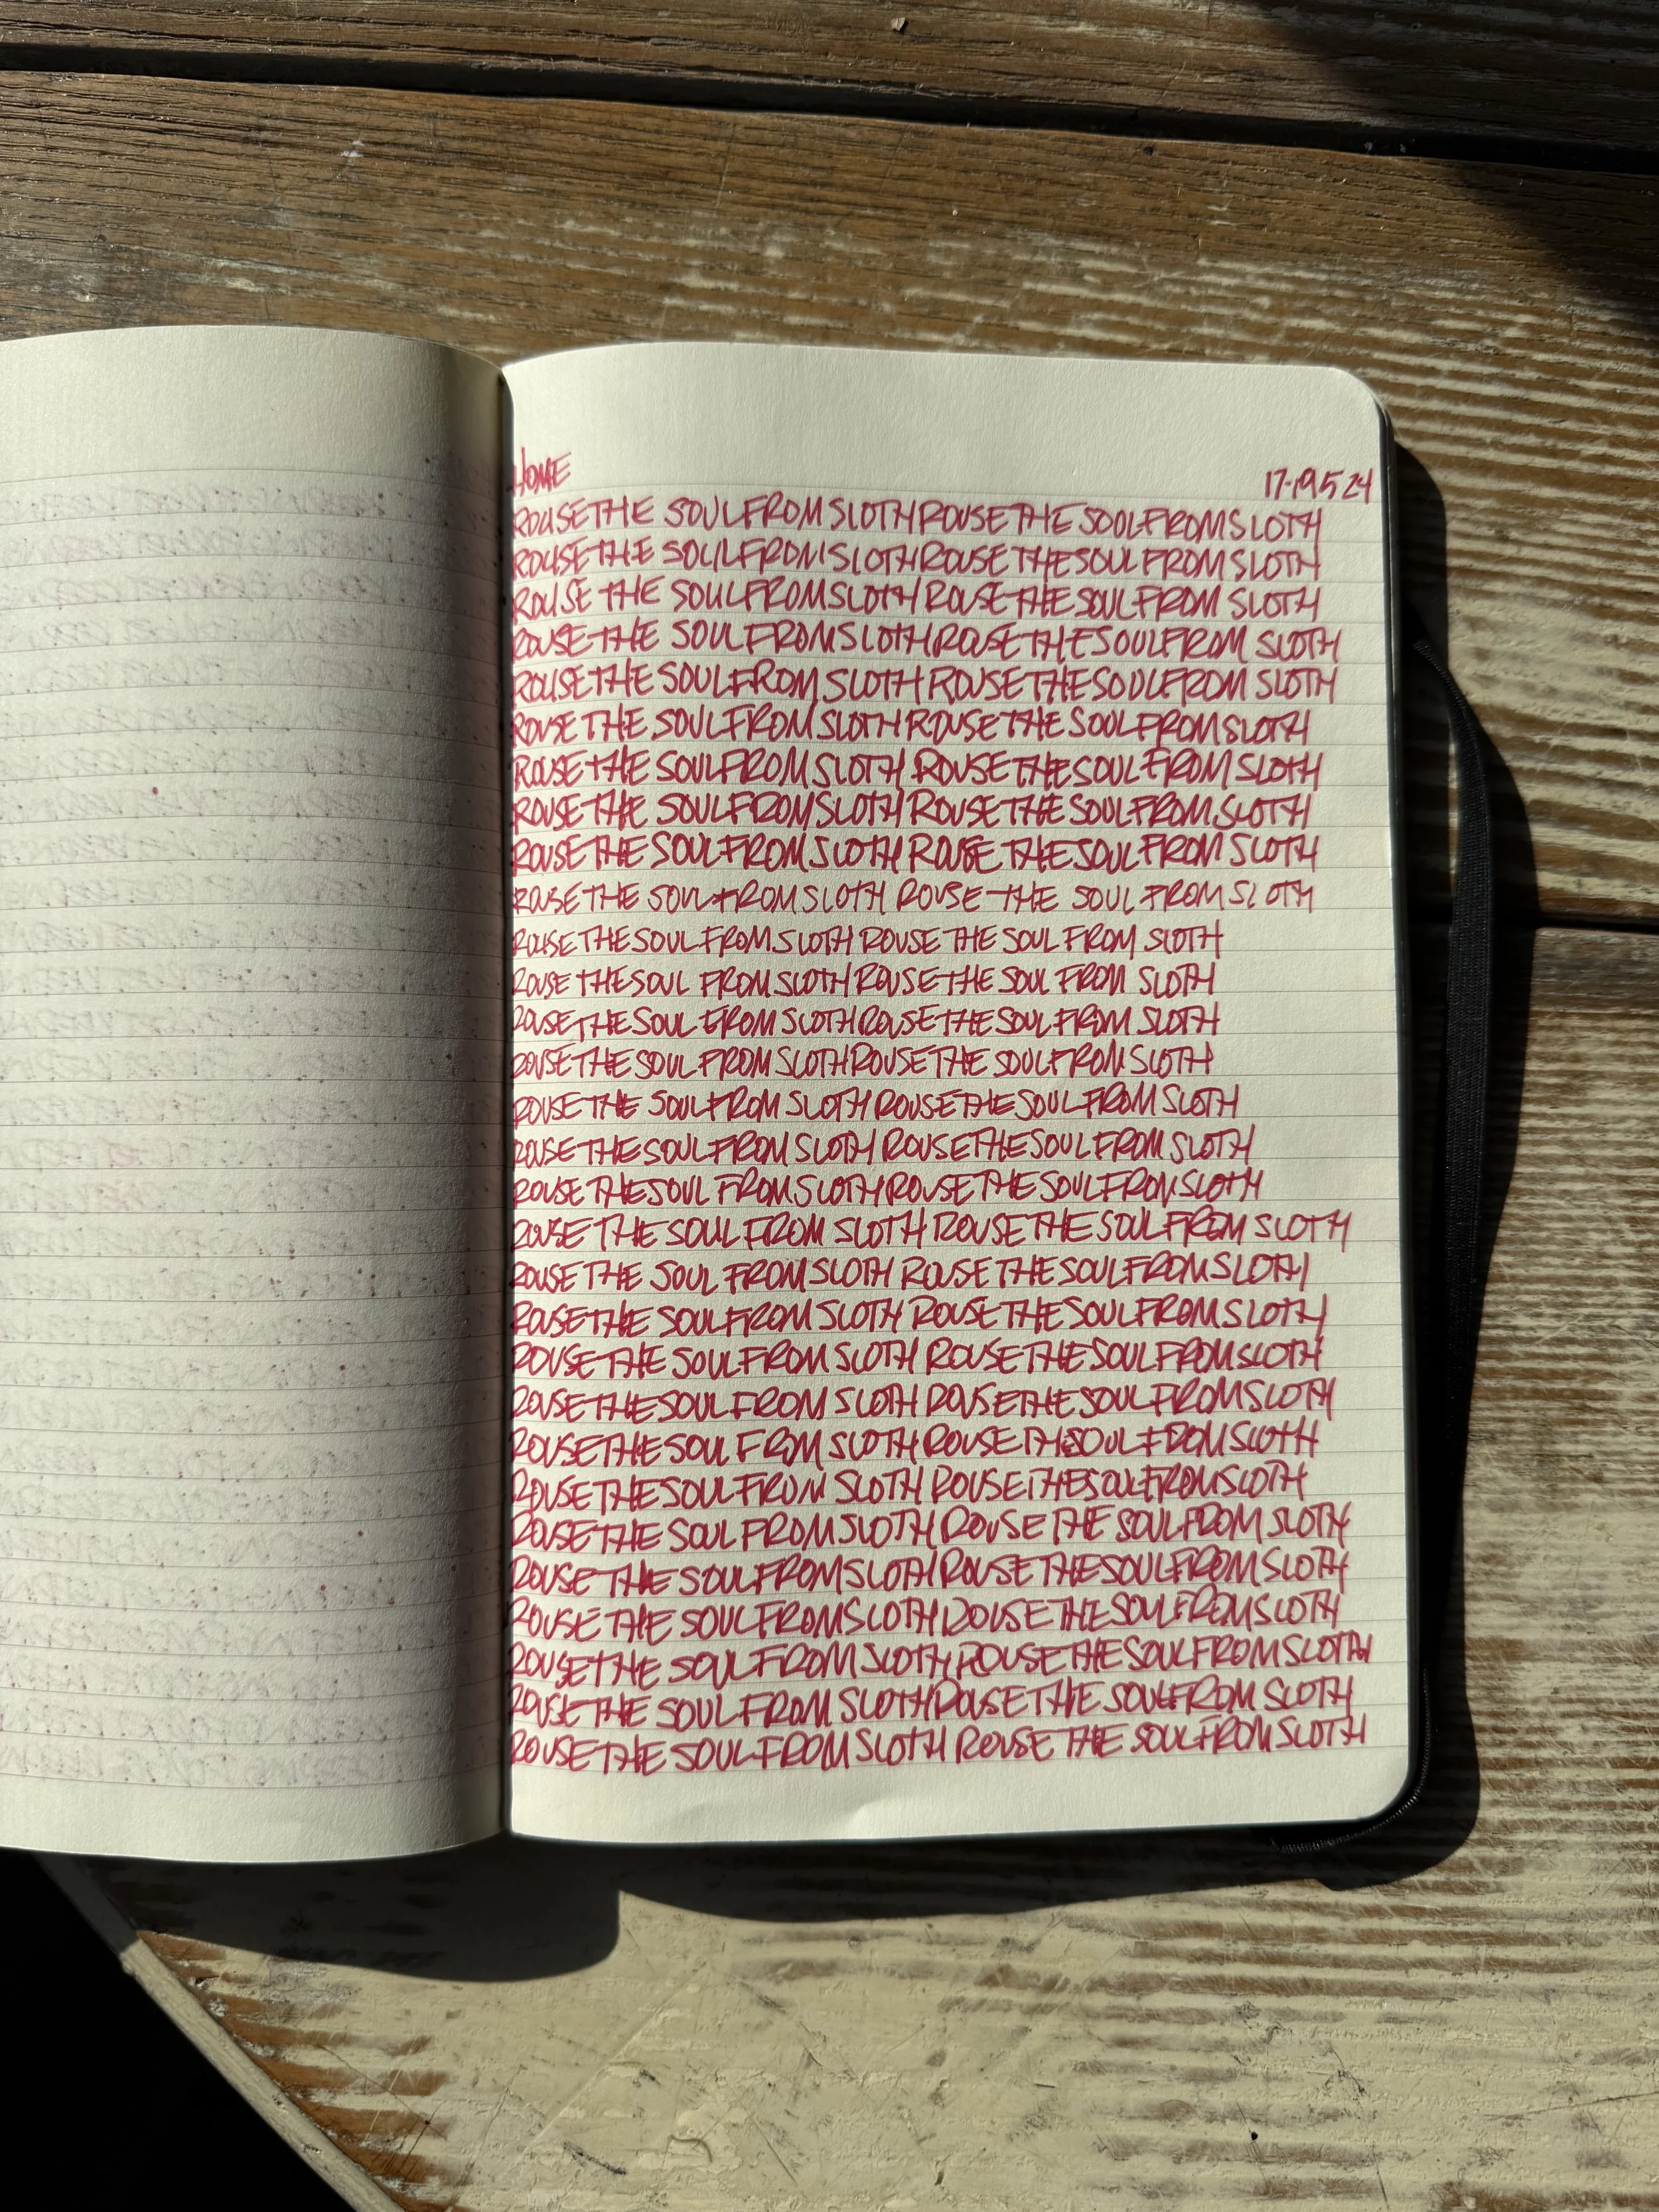 HOME
17-19 5 24
ROUSE THE SOUL FROM SLOTH ROUSE THE SOUL FROM SLOTH
ROUSE THE SOUL FROM SLOTH ROUSE THE SOUL FROM SLOTH
ROUSE THE SOUL FROM SLOTH ROUSE THE SOUL FROM SLOTH
ROUSE THE SOUL FROM SLOTH ROUSE THE SOUL FROM SLOTH
ROUSE THE SOUL FROM SLOTH ROUSE THE SOUL FROM SLOTH
ROUSE THE SOUL FROM SLOTH ROUSE THE SOUL FROM SLOTH
ROUSE THE SOUL FROM SLOTH ROUSE THE SOUL FROM SLOTH
ROUSE THE SOUL FROM SLOTH ROUSE THE SOUL FROM SLOTH
ROUSE THE SOUL FROM SLOTH ROUSE THE SOUL FROM SLOTH
ROUSE THE SOUL FROM SLOTH ROUSE THE SOUL FROM SLOTH
ROUSE THE SOUL FROM SLOTH ROUSE THE SOUL FROM SLOTH
ROUSE THE SOUL FROM SLOTH ROUSE THE SOUL FROM SLOTH
ROUSE THE SOUL FROM SLOTH ROUSE THE SOUL FROM SLOTH
ROUSE THE SOUL FROM SLOTH ROUSE THE SOUL FROM SLOTH
ROUSE THE SOUL FROM SLOTH ROUSE THE SOUL FROM SLOTH
ROUSE THE SOUL FROM SLOTH ROUSE THE SOUL FROM SLOTH
ROUSE THE SOUL FROM SLOTH ROUSE THE SOUL FROM SLOTH
ROUSE THE SOUL FROM SLOTH ROUSE THE SOUL FROM SLOTH
ROUSE THE SOUL FROM SLOTH ROUSE THE SOUL FROM SLOTH
ROUSE THE SOUL FROM SLOTH ROUSE THE SOUL FROM SLOTH
ROUSE THE SOUL FROM SLOTH ROUSE THE SOUL FROM SLOTH
ROUSE THE SOUL FROM SLOTH ROUSE THE SOUL FROM SLOTH
ROUSE THE SOUL FROM SLOTH ROUSE THE SOUL FROM SLOTH
ROUSE THE SOUL FROM SLOTH ROUSE THE SOUL FROM SLOTH
ROUSE THE SOUL FROM SLOTH ROUSE THE SOUL FROM SLOTH
ROUSE THE SOUL FROM SLOTH ROUSE THE SOUL FROM SLOTH
ROUSE THE SOUL FROM SLOTH ROUSE THE SOUL FROM SLOTH
ROUSE THE SOUL FROM SLOTH ROUSE THE SOUL FROM SLOTH
ROUSE THE SOUL FROM SLOTH ROUSE THE SOUL FROM SLOTH
ROUSE THE SOUL FROM SLOTH ROUSE THE SOUL FROM SLOTH